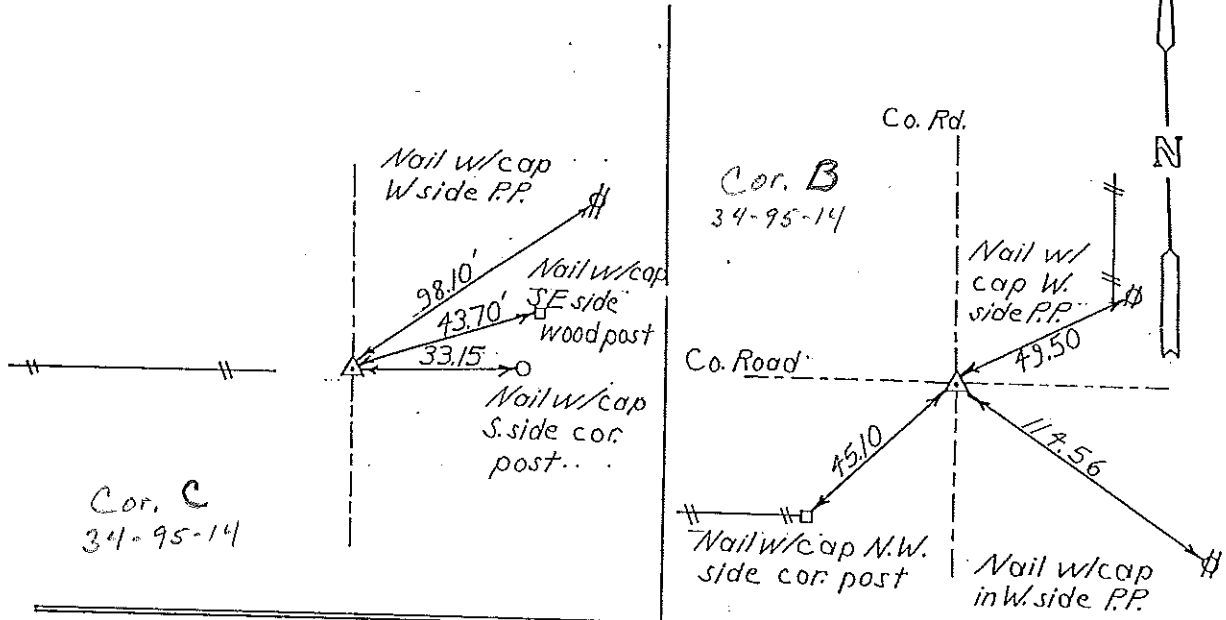 Nail w/cap
W side P.P.
98.10'
Nail w/cap
S.E side
wood post
43.70'
33.15
Nail w/cap
S. side cor.
post..
Cor. C
34-95-14
Co. Rd.
Cor. B
34-95-14
N
Nail w/
cap W.
side P.P.
49.50
Co. Road
45.10
114.56
Nail w/cap N.W.
side cor. post
Nail w/cap
in W. side P.P.